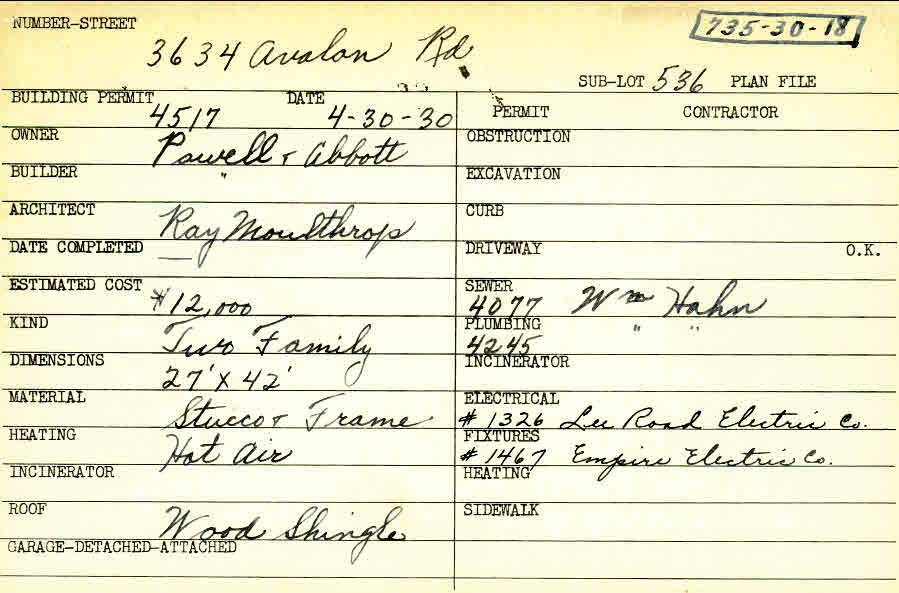 NUMBER-STREET
735-30-18
3634 Avalon Rd
SUB-LOT 536 PLAN FILE
BUILDING PERMIT DATE
4517 4-30-30
PERMIT CONTRACTOR
OWNER
Powell & Abbott
OBSTRUCTION
BUILDER
"
EXCAVATION
ARCHITECT
Ray Moulthrop
CURB
DATE COMPLETED
—
DRIVEWAY O.K.
ESTIMATED COST
$12,000
SEWER
4077 Wm Hahn
KIND
Two Family
PLUMBING
4245 " "
DIMENSIONS
27' X 42'
INCINERATOR
MATERIAL
Stucco & Frame
ELECTRICAL
# 1326 Lee Road Electric Co.
HEATING
Hot Air
FIXTURES
# 1467 Empire Electric Co.
INCINERATOR
HEATING
ROOF
Wood Shingle
SIDEWALK
GARAGE-DETACHED-ATTACHED